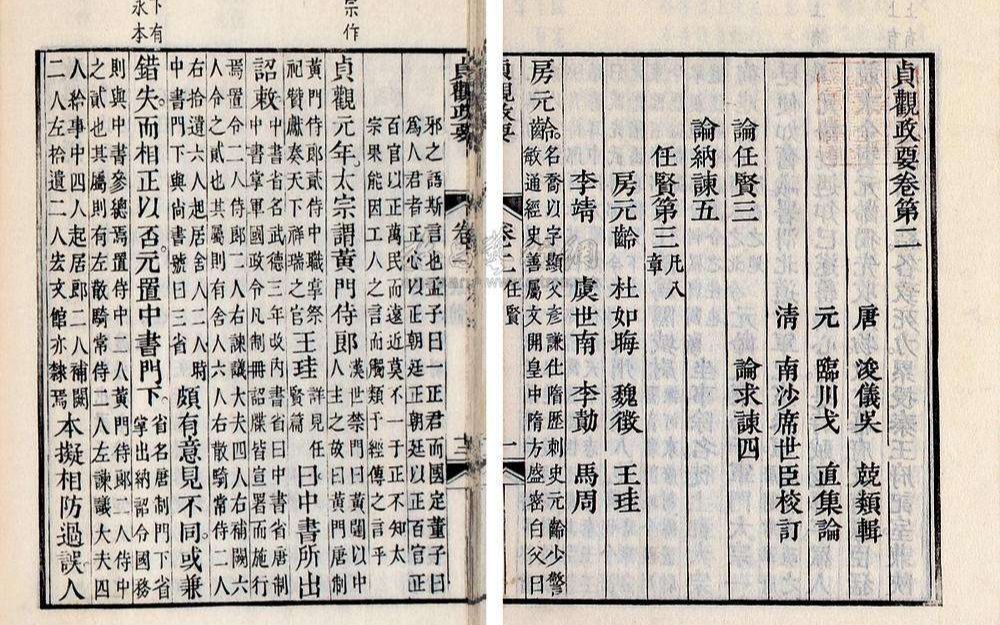 貞觀政要卷第二
唐 浚儀吳 兢類輯
元 臨川戈 直集論
清 南沙席世臣校訂
論任賢三 論求諫四
論納諫五
任賢第三 凡八章
房元齡 杜如晦 魏徵 王珪
李靖 虞世南 李勣 馬周
房元齡 名喬以字顯父彥謙仕隋歷刺史元齡少警
敏通經史善屬文開皇中隋方盛密白父曰
貞觀政要 卷二任賢 一
宗作
下有
永本
貞觀政要 卷
邪之語斯言也正子曰一正君而國定董子曰
爲人君者正心以正朝廷正朝廷以正百官正
百官以正萬民而遠近莫不一于正不知太
宗果能因工人之言而觸類于經傳之言乎
貞觀元年太宗謂黃門侍郎 漢世禁門曰黃闥以中
人主之故曰黃門唐制
黃門侍郎貳侍中職掌祭
祀贊獻奏天下祥瑞之官 王珪 詳見任賢篇 曰中書所出
詔敕 中書省名武德三年改內書省曰中書省唐制
中書掌軍國政令凡制冊詔牒皆宣署而施行
焉置令二人侍郎二人右諫議大夫四人右補闕六
人令之貳也其屬則有舍人六人右散騎常侍二人
右拾遺六人起居舍人二人時
中書門下與尚書號曰三省 頗有意見不同或兼
錯失而相正以否元置中書門下 省名唐制門下省
掌出納詔令國務
則與中書參總焉置侍中二人黃門侍郎二人侍中
之貳也其屬則有左散騎常侍二人左諫議大夫四
人給事中四人起居郎二人補闕
二人左拾遺二人宏文館亦隸焉 本擬相防過誤人